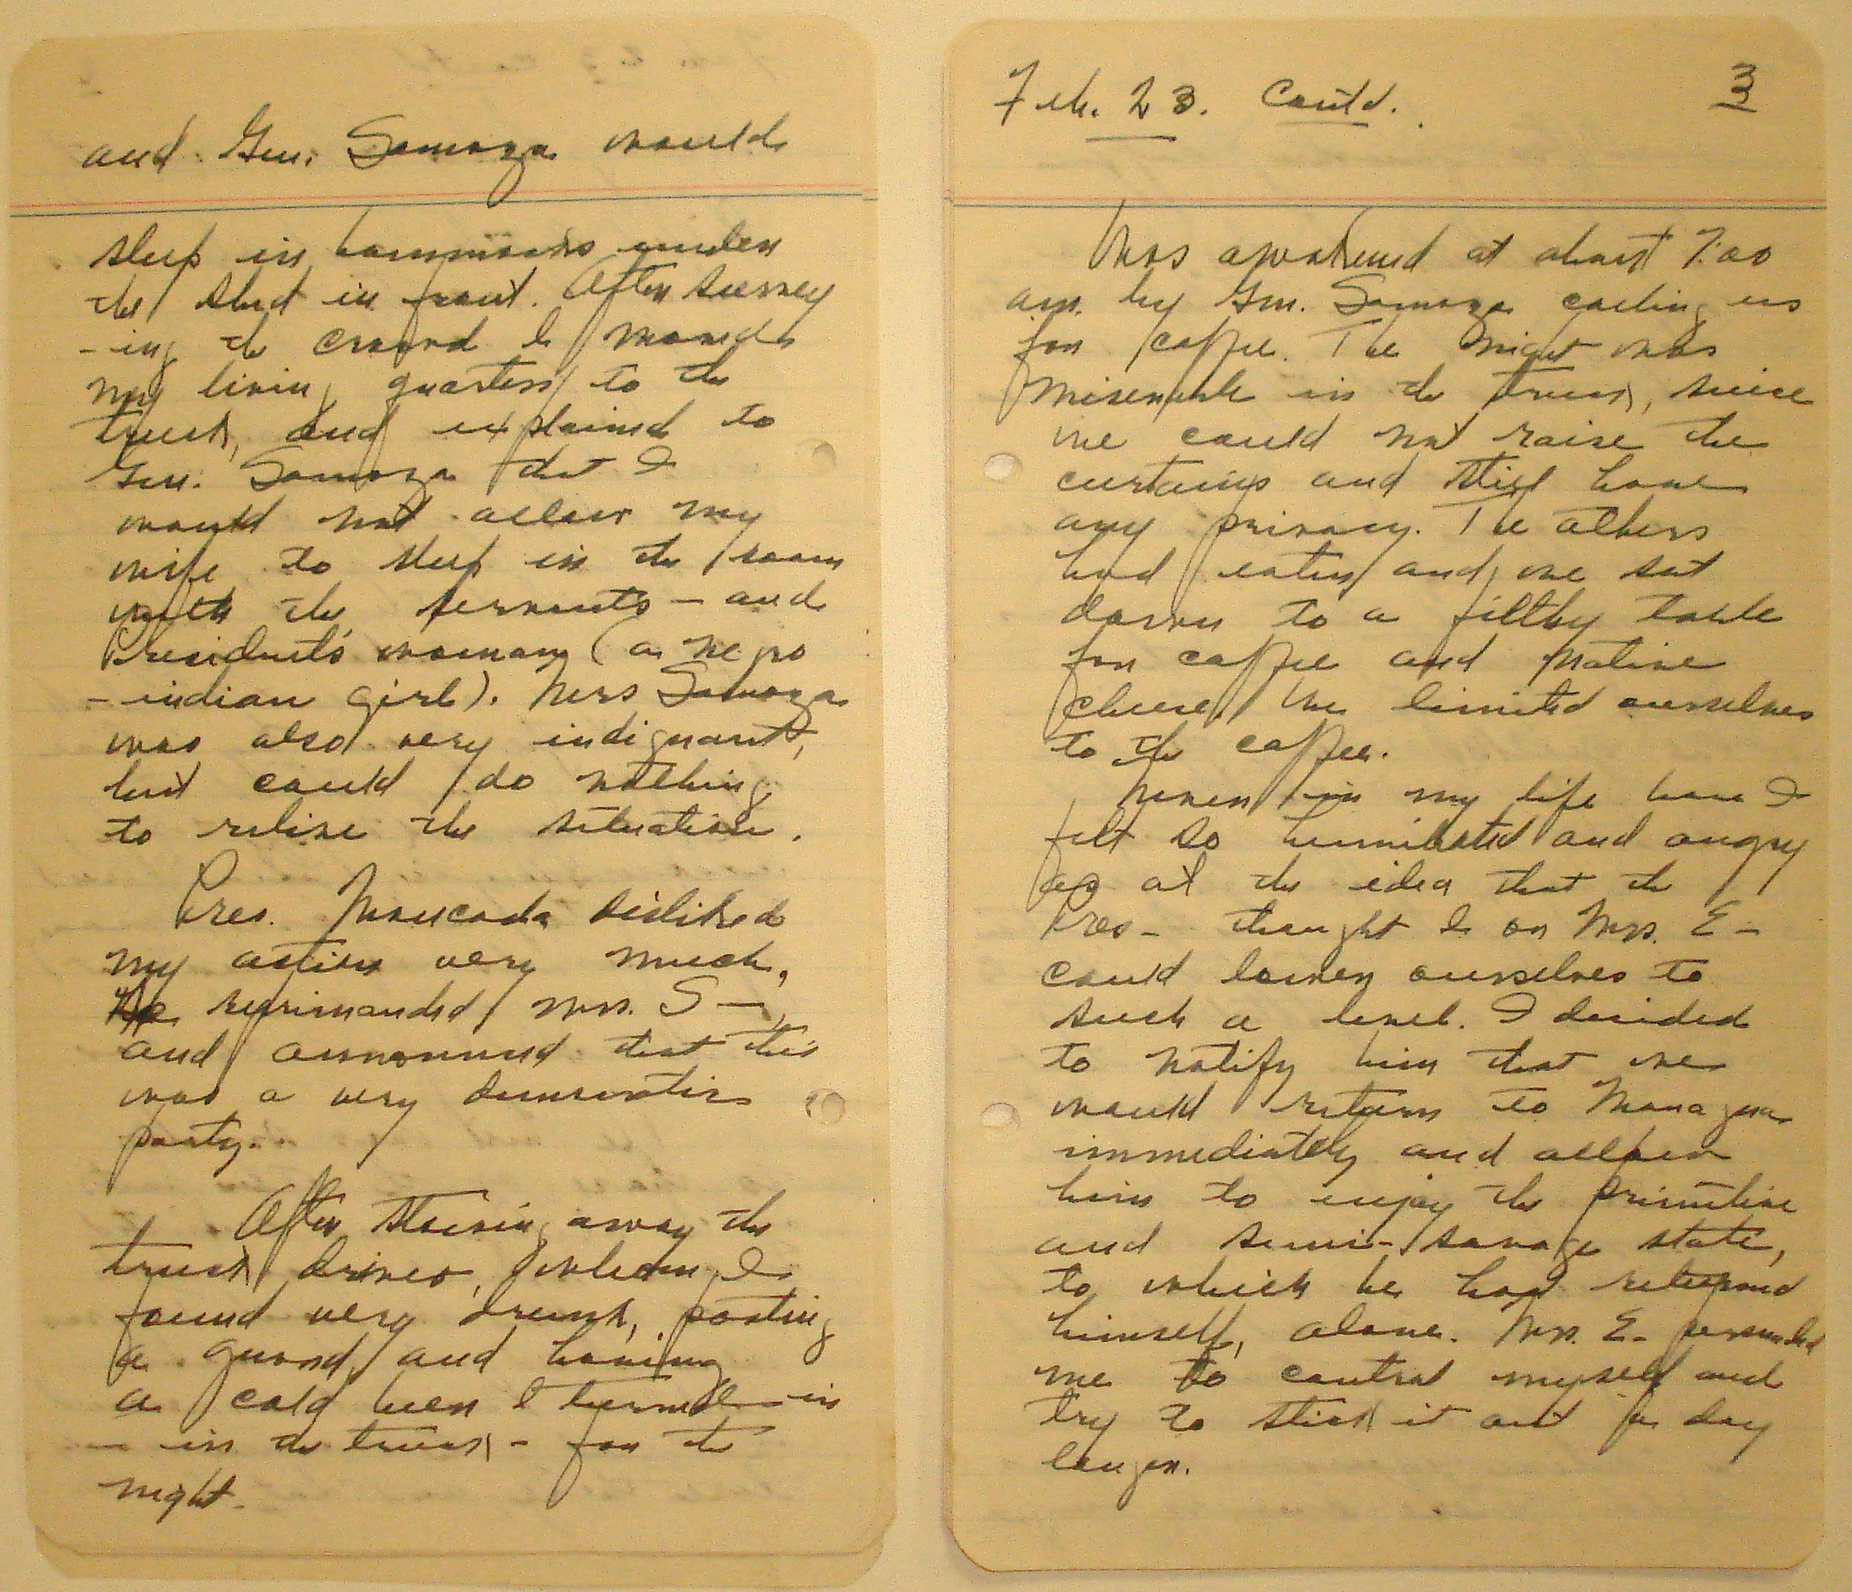 and Gen. Somoza would
sleep in hammocks under
the shed in front. After survey
-ing the crowd I moved
my living quarters to the
truck, and explained to
Gen. Somoza that I
would not allow my
wife to sleep in the room
with the servants – and
President's woman (a negro
-indian girl). Mrs Somoza
was also very indignant,
but could do nothing
to relieve the situation.
Pres. Moncada disliked
my action very much,
He reprimanded Mrs. S—,
and announced that this
was a very democratic
party.
After stowing away the
truck driver, whom I
found very drunk, posting
a guard, and having
a cold beer I turned in
– in the truck – for the
night.
Feb. 23. Cont'd. 3
Was awakened at about 7:00
am. by Gen. Somoza calling us
for coffee. The night was
miserable in the truck, since
we could not raise the
curtains and still have
any privacy. The others
had eaten and we sat
down to a filthy table
for coffee and native
cheese. We limited ourselves
to the coffee.
Never in my life have I
felt so humiliated and angry
as at the idea that the
Pres – thought I or Mrs. E –
could lower ourselves to
such a level. I decided
to notify him that we
would return to Managua
immediately and allow
him to enjoy the primitive
and semi-savage state,
to which he had returned
himself, alone. Mrs. E– persuaded
me to control myself and
try to stick it out a day
longer.